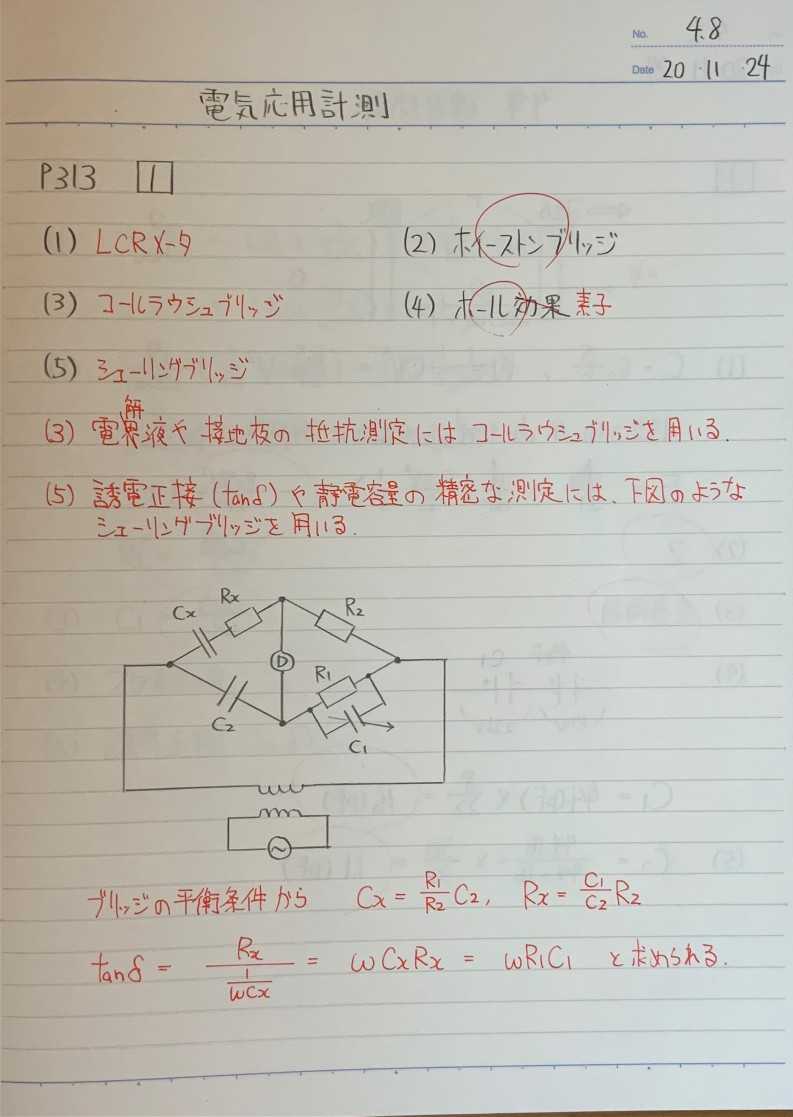 No. 4.8
Date 20・11・24
電気応用計測
P313 1
(1) LCRメータ (2) ホイーストンブリッジ
(3) コールラウシュブリッジ (4) ホール効果素子
(5) シェーリングブリッジ
解
(3) 電界液や接地板の抵抗測定にはコールラウシュブリッジを用いる.
(5) 誘電正接(tanδ)や静電容量の精密な測定には、下図のような
シェーリングブリッジを用いる.
Cx Rx R2
D
C2 R1
C1
~
ブリッジの平衡条件から Cx = R1/R2 C2, Rx = C1/C2 R2
tanδ = Rx/(1/ωCx) = ωCxRx = ωR1C1 と求められる.